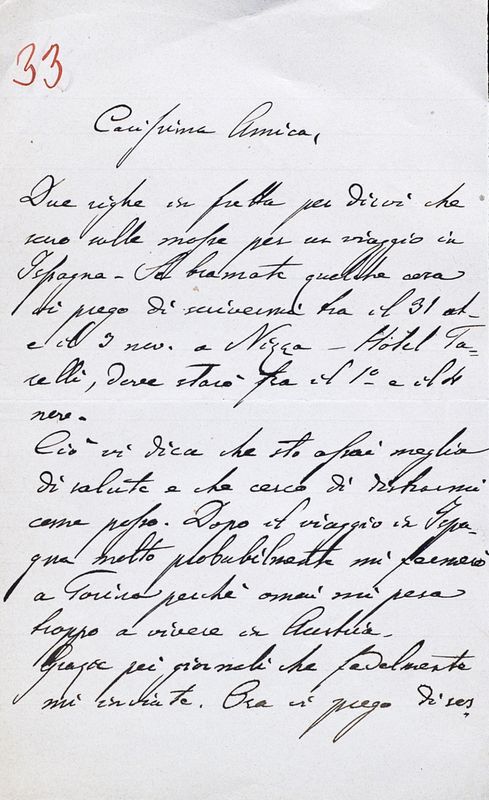 33
Carissima Amica,
Due righe in fretta per dirvi che
sono sulle mosse per un viaggio in
Ispagna - Se bramate qualche cosa
vi prego di scrivermi tra il 31 ott.
e il 3 nov. a Nizza - Hôtel
dove starò fra il 1º e il 4
nov.
Ciò vi dica che sto assai meglio
di salute e che cerco di distrarmi
come posso. Dopo il viaggio in Ispa-
gna molto probabilmente mi fermerò
a Torino perchè omai mi pesa
troppo a vivere in Austria.
Grazie pei giornali che fedelmente
mi inviate. Ora vi prego di sos